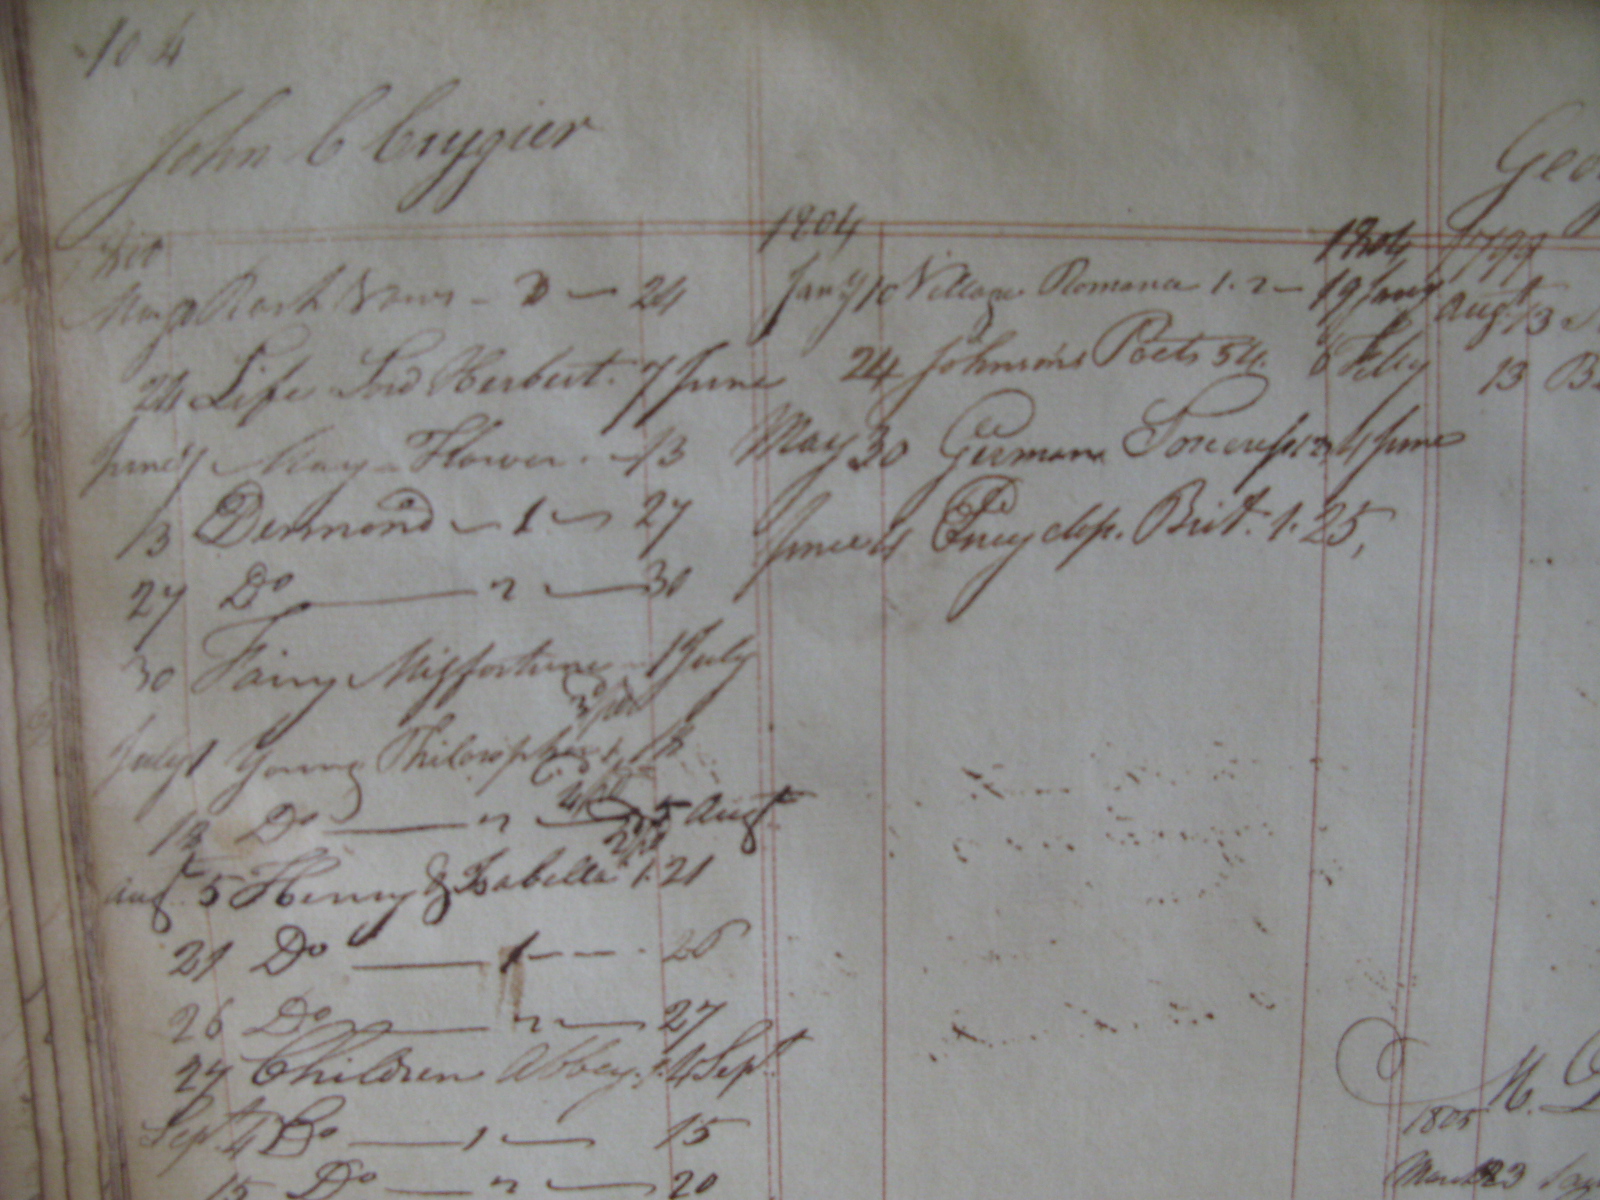 104
John C Cuygier
1800
May 9 Rash Vows - 2 - 24
24 Life Lord Herbert. 7 June
June 7 May-Flower. - 13
13 Desmond - 1 - 27
27 Do - 2 - 30
30 Fairy Misfortune - 1 July
July 1 Young Philosopher 1,
Do - 2 - 5 Augt
Augt. 5 Henry & Isabella 1. 21
21 Do - 1 - - - 26
26 Do - 2 - 27
27 Children Abbey. 1. 4 Sept.
Sept 4 Do - 1 - 15
15 Do - 2 - 20
1804 1804
Jany 10 Village Romance 1. 2 - 19 Jany
24 Johnsons Poets 54. 6 Feby
May 30 German Sorceress 4 June
June 4 Encyclop. Brit. 1. 25,
Geo
1799
Augt 13
13 B
M.
1805
March 23